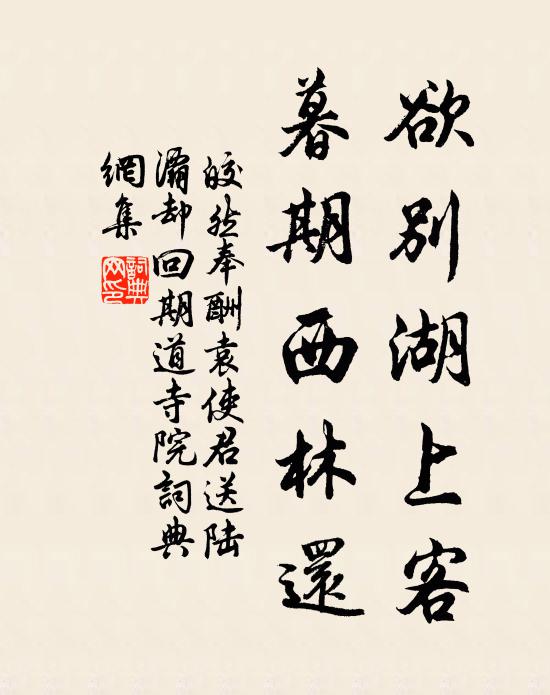 欲別湖上客
暮期西林還
皎然奉酬袁使君送陸
灞却回期道寺院詞典
網集
詞典網印